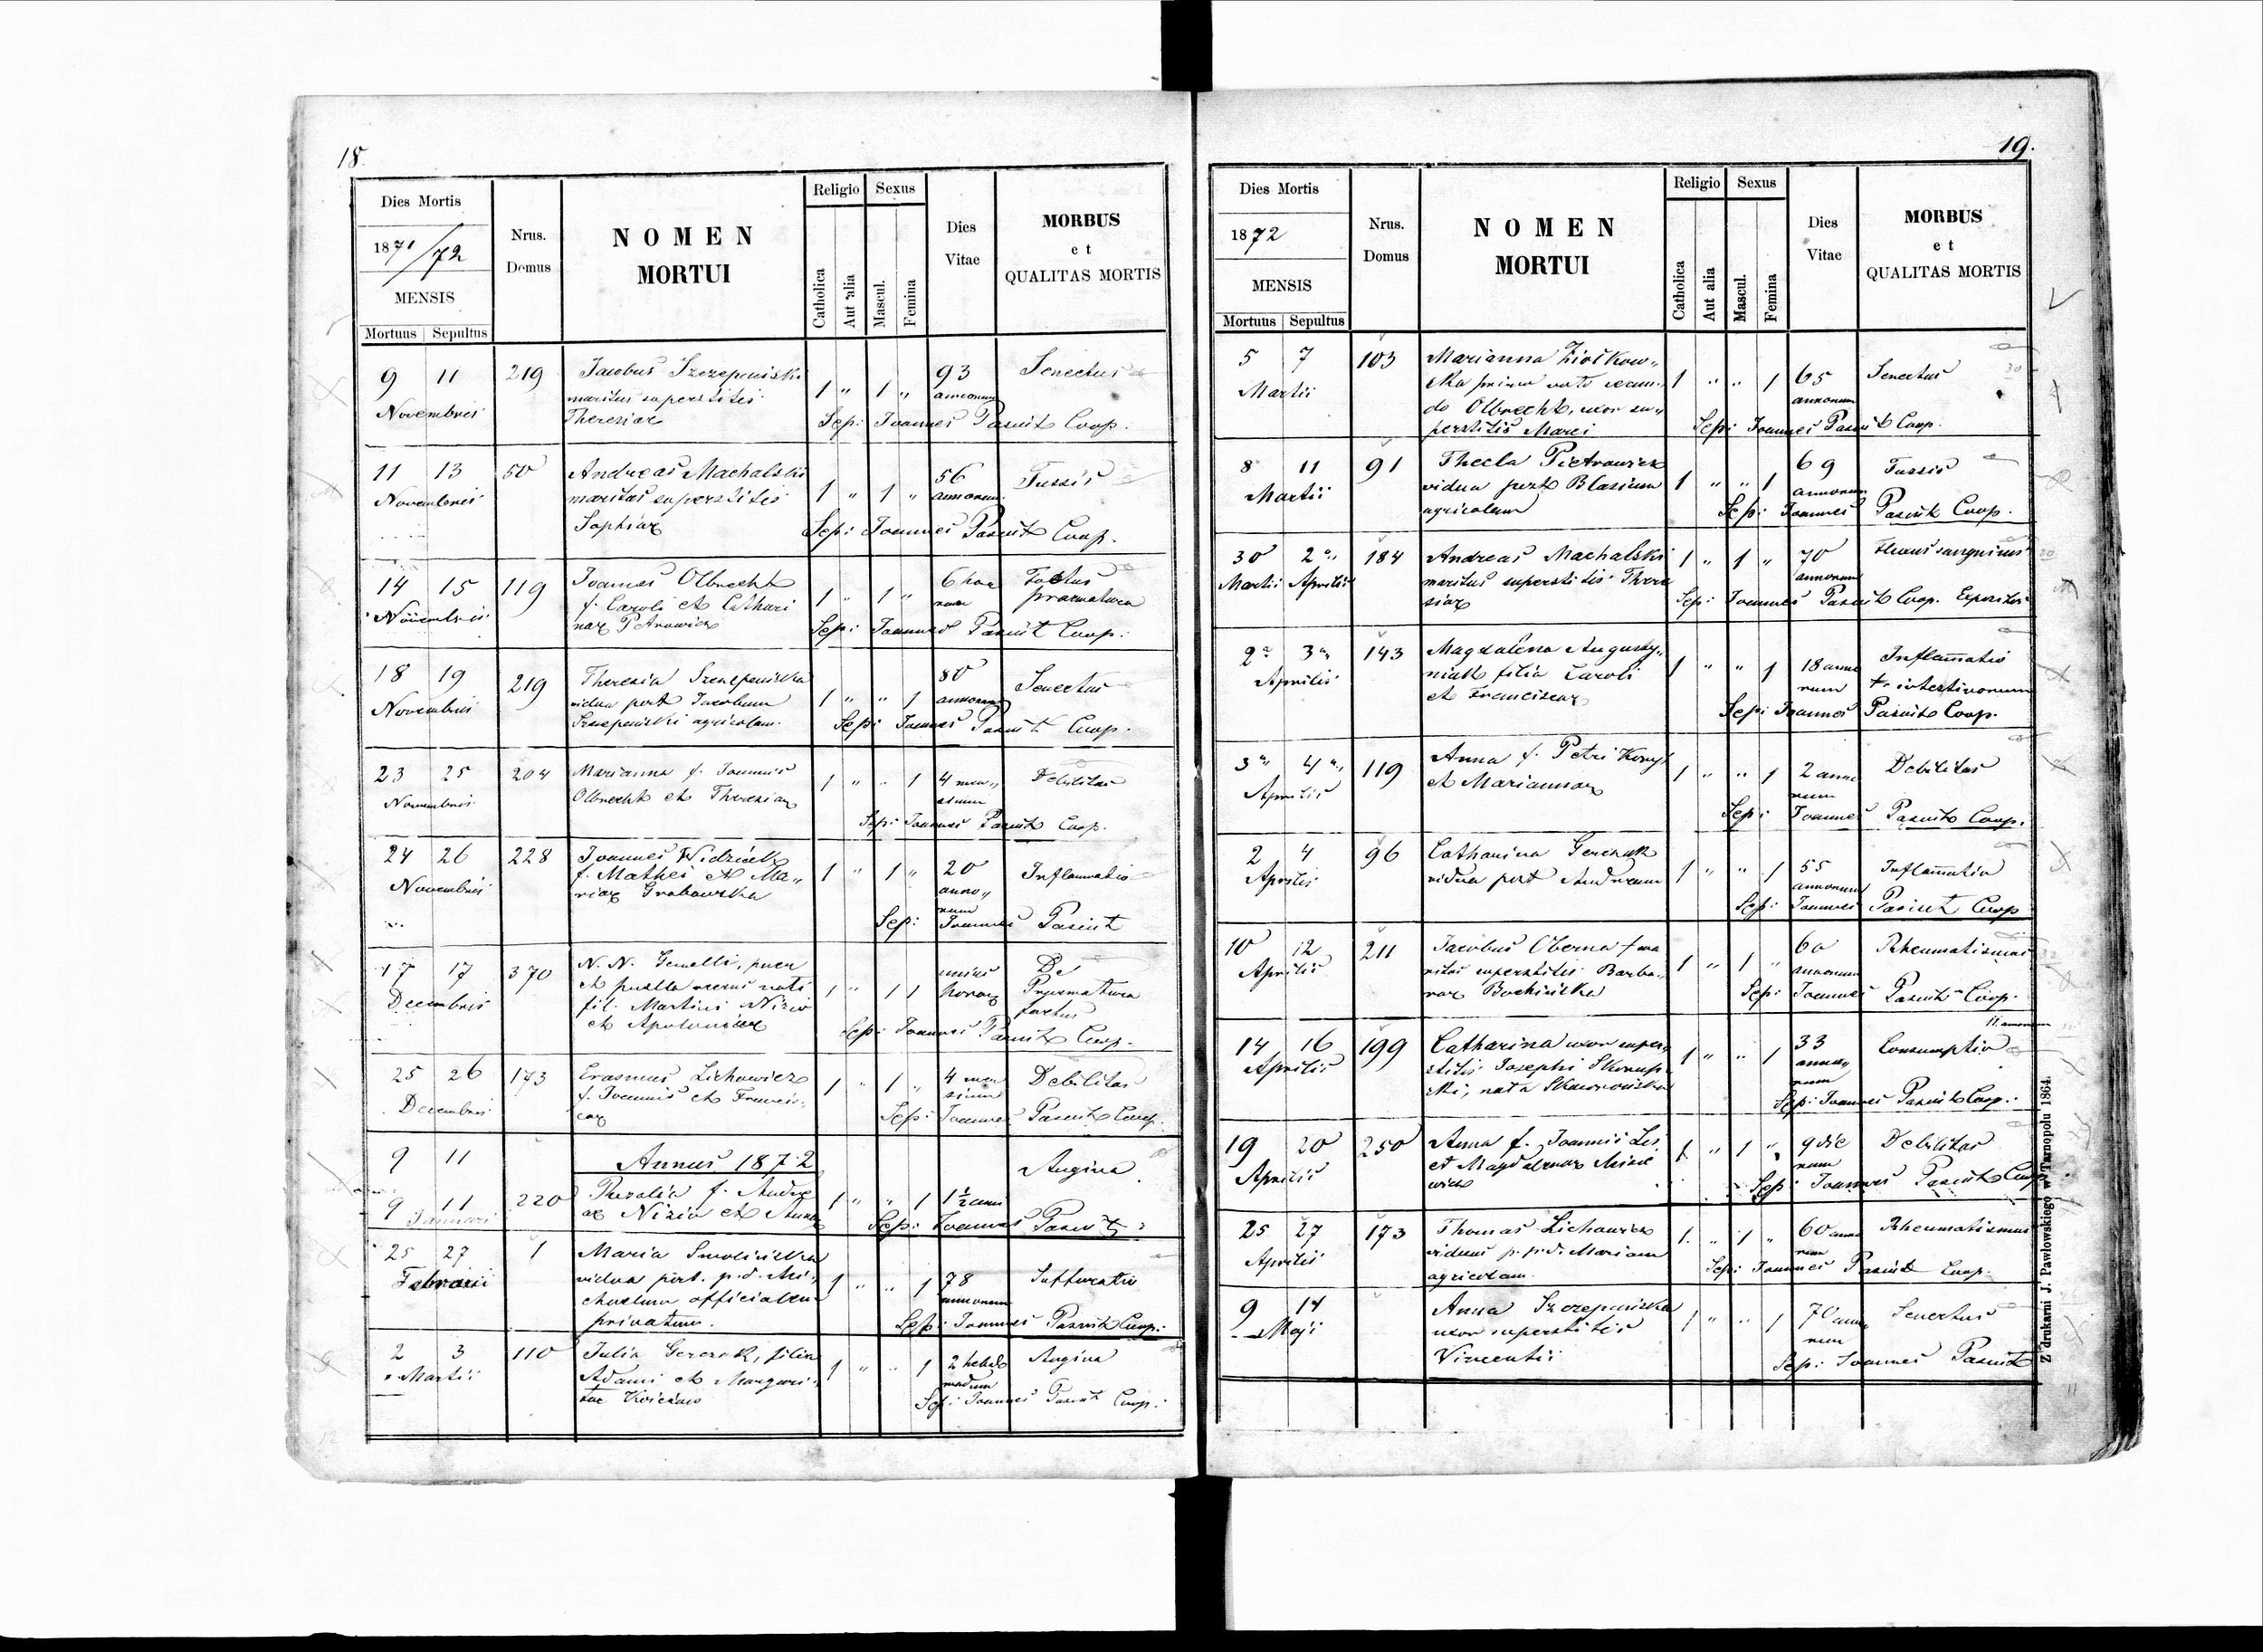 18.
Dies Mortis
1871/72
MENSIS
Mortuus Sepultus
Nrus.
Domus
NOMEN
MORTUI
Religio Sexus
Catholica
Aut alia
Mascul.
Femina
Dies
Vitae
MORBUS
et
QUALITAS MORTIS
9 11 219 Jacobus Szczepański 93 Senectus
maritus superstitis 1 " 1 " annorum
Novembris Theresiae Sep: Joannes Pasiut Coop.
11 13 50 Andreas Machalski 56 Tussis
Novembris maritus superstitis 1 " 1 " annorum
Sophiae Sep: Joannes Pasiut Coop.
14 15 119 Joannes Olbrecht 6 hora Foetus
f. Caroli et Cathari 1 " 1 " rum praematura
Novembris nae Petrowicz Sep: Joannes Pasiut Coop.
18 19 219 Theresia Szczepańska 80 Senectus
Novembris vidua post Jacobum 1 " " 1 annorum
Szczepański agricolam. Sep: Joannes Pasiut Coop.
23 25 204 Marianna f. Joannis 1 " " 1 4 men„ Debilitas
Novembris Olbrecht et Theresiae sium
Sep: Joannes Pasiut Coop.
24 26 228 Joannes Widziak 20 Inflammatio
Novembris f. Mathei et Ma„ 1 " 1 " anno„
riae Grabowska rum
Sep: Joannes Pasiut
17 17 370 N. N. Gemelli, puer unius
et puella nati horae Praematura
Decembris fil. Martini Nizio 1 " 1 1 partus
et Apoloniae Sep: Joannes Pasiut Coop.
25 26 173 Erasmus Lichowicz 1 " 1 " 4 men Debilitas
Decembris f. Joannis et Francis„ sium
cae Sep: Joannes Pasiut Coop.
9 11 Annus 1872 Angina
9 11 220 f. Andre 1 " " 1 1½ anni
Januari ae Nizio et Annae Sep: Joannes Pasiut
25 27 1 Maria Smolińska
Februarii vidua post. p. d. Mi„ 1 " " 1 78 Suffocatio
chaelem officialem annorum
privatum. Sep: Joannes Pasiut Coop.
2 3 110 Julia Gerczak, filia 1 " " 1 2 hebdo Angina
Martii Adami et Margari„ madum
tae Sep: Joannes Pasiut Coop.
19.
Dies Mortis
1872
MENSIS
Mortuus Sepultus
Nrus.
Domus
NOMEN
MORTUI
Religio Sexus
Catholica
Aut alia
Mascul.
Femina
Dies
Vitae
MORBUS
et
QUALITAS MORTIS
5 7 103 Marianna Ziołkow„
Martii ska primo voto secun„ 1 " " 1 65 Senectus
do Olbrecht, uxor su„ annorum
perstitis Marci Sep: Joannes Pasiut Coop.
8 11 91 Thecla Pietrowicz 69 Tussis
Martii vidua post Blasium 1 " " 1 annorum
agricolam Sep: Joannes Pasiut Coop.
30 2 184 Andreas Machalski 1 " 1 " 70 Fluxus sanguinis
Martii Aprilis maritus superstitis There annorum
siae Sep: Joannes Pasiut Coop. Expositus
2 3 143 Magdalena Augusty„ Inflammatio
Aprilis niak filia Caroli 1 " " 1 18 anno intestinorum
et Franciscae rum
Sep: Joannes Pasiut Coop.
3 4 119 Anna f. Petri 1 " " 1 2 anno Debilitas
Aprilis et Mariannae rum
Sep: Joannes Pasiut Coop.
2 4 96 Catharina Gerczak 55 Inflammatio
Aprilis vidua post Andream 1 " " 1 annorum
Sep: Joannes Pasiut Coop
10 12 211 Jacobus Oberna f ma 60 Rheumatismus
Aprilis ritus superstitis Barba„ 1 " 1 " annorum
rae Bochińska Sep: Joannes Pasiut Coop.
14 16 199 Catharina uxor super„ 33 Consumptio
Aprilis stitis Josephi Skorup 1 " " 1 anno„
ski, nata rum
Sep: Joannes Pasiut Coop.
19 20 250 Anna f. Joannis Leś 1 " 1 " 9 die Debilitas
Aprilis et Magdalenae rum
Sep: Joannes Pasiut Coop.
25 27 173 Thomas Lichowicz 1 " 1 " 60 anno Rheumatismus
Aprilis viduus p. p. d. Mariam rum
agricolam. Sep: Joannes Pasiut Coop.
9 14 Anna Szczepańska 1 " " 1 70 anno Senectus
Maji uxor superstitis rum
Vincentii Sep: Joannes Pasiut
Z drukarni J. Pawłowskiego w Tarnopolu 1864.